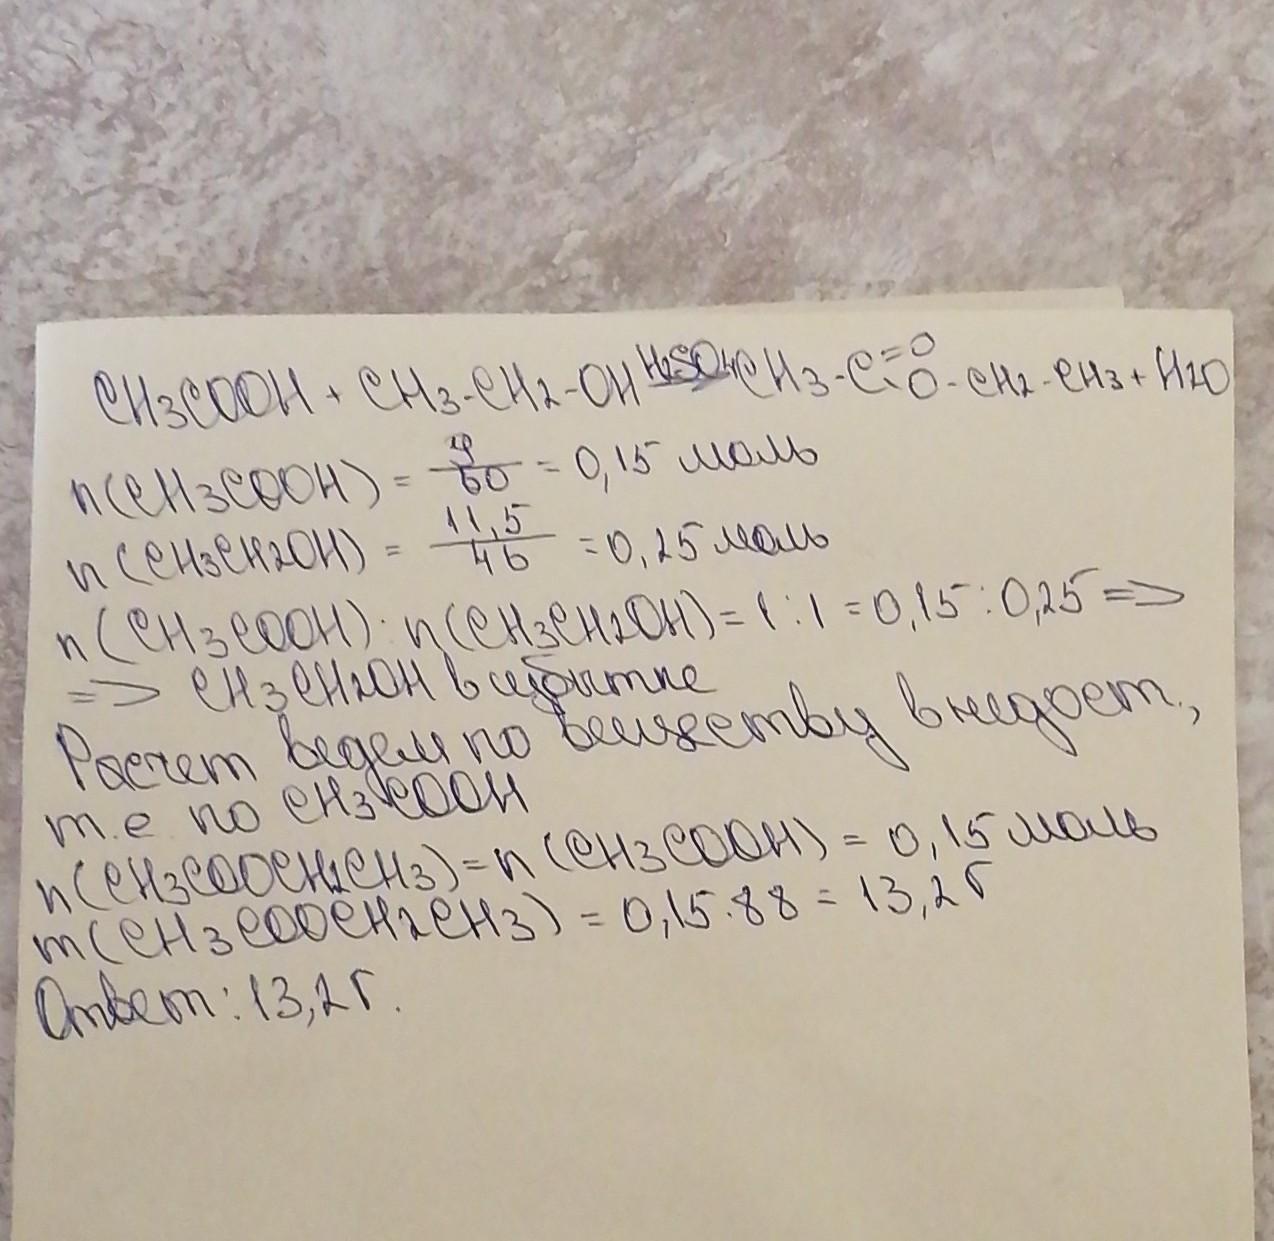 CH3COOH + CH3-CH2-OH H2SO4 CH3-C=O O-CH2-CH3 + H2O
n(CH3COOH) = 9/60 = 0,15 моль
n(CH3CH2OH) = 11,5/46 = 0,25 моль
n(CH3COOH) : n(CH3CH2OH) = 1:1 = 0,15 : 0,25 =>
=> CH3CH2OH в избытке
Расчет ведем по веществу в недост.,
т.е по CH3COOH
n(CH3COOCH2CH3) = n(CH3COOH) = 0,15 моль
m(CH3COOCH2CH3) = 0,15·88 = 13,2 г
Ответ: 13,2 г.